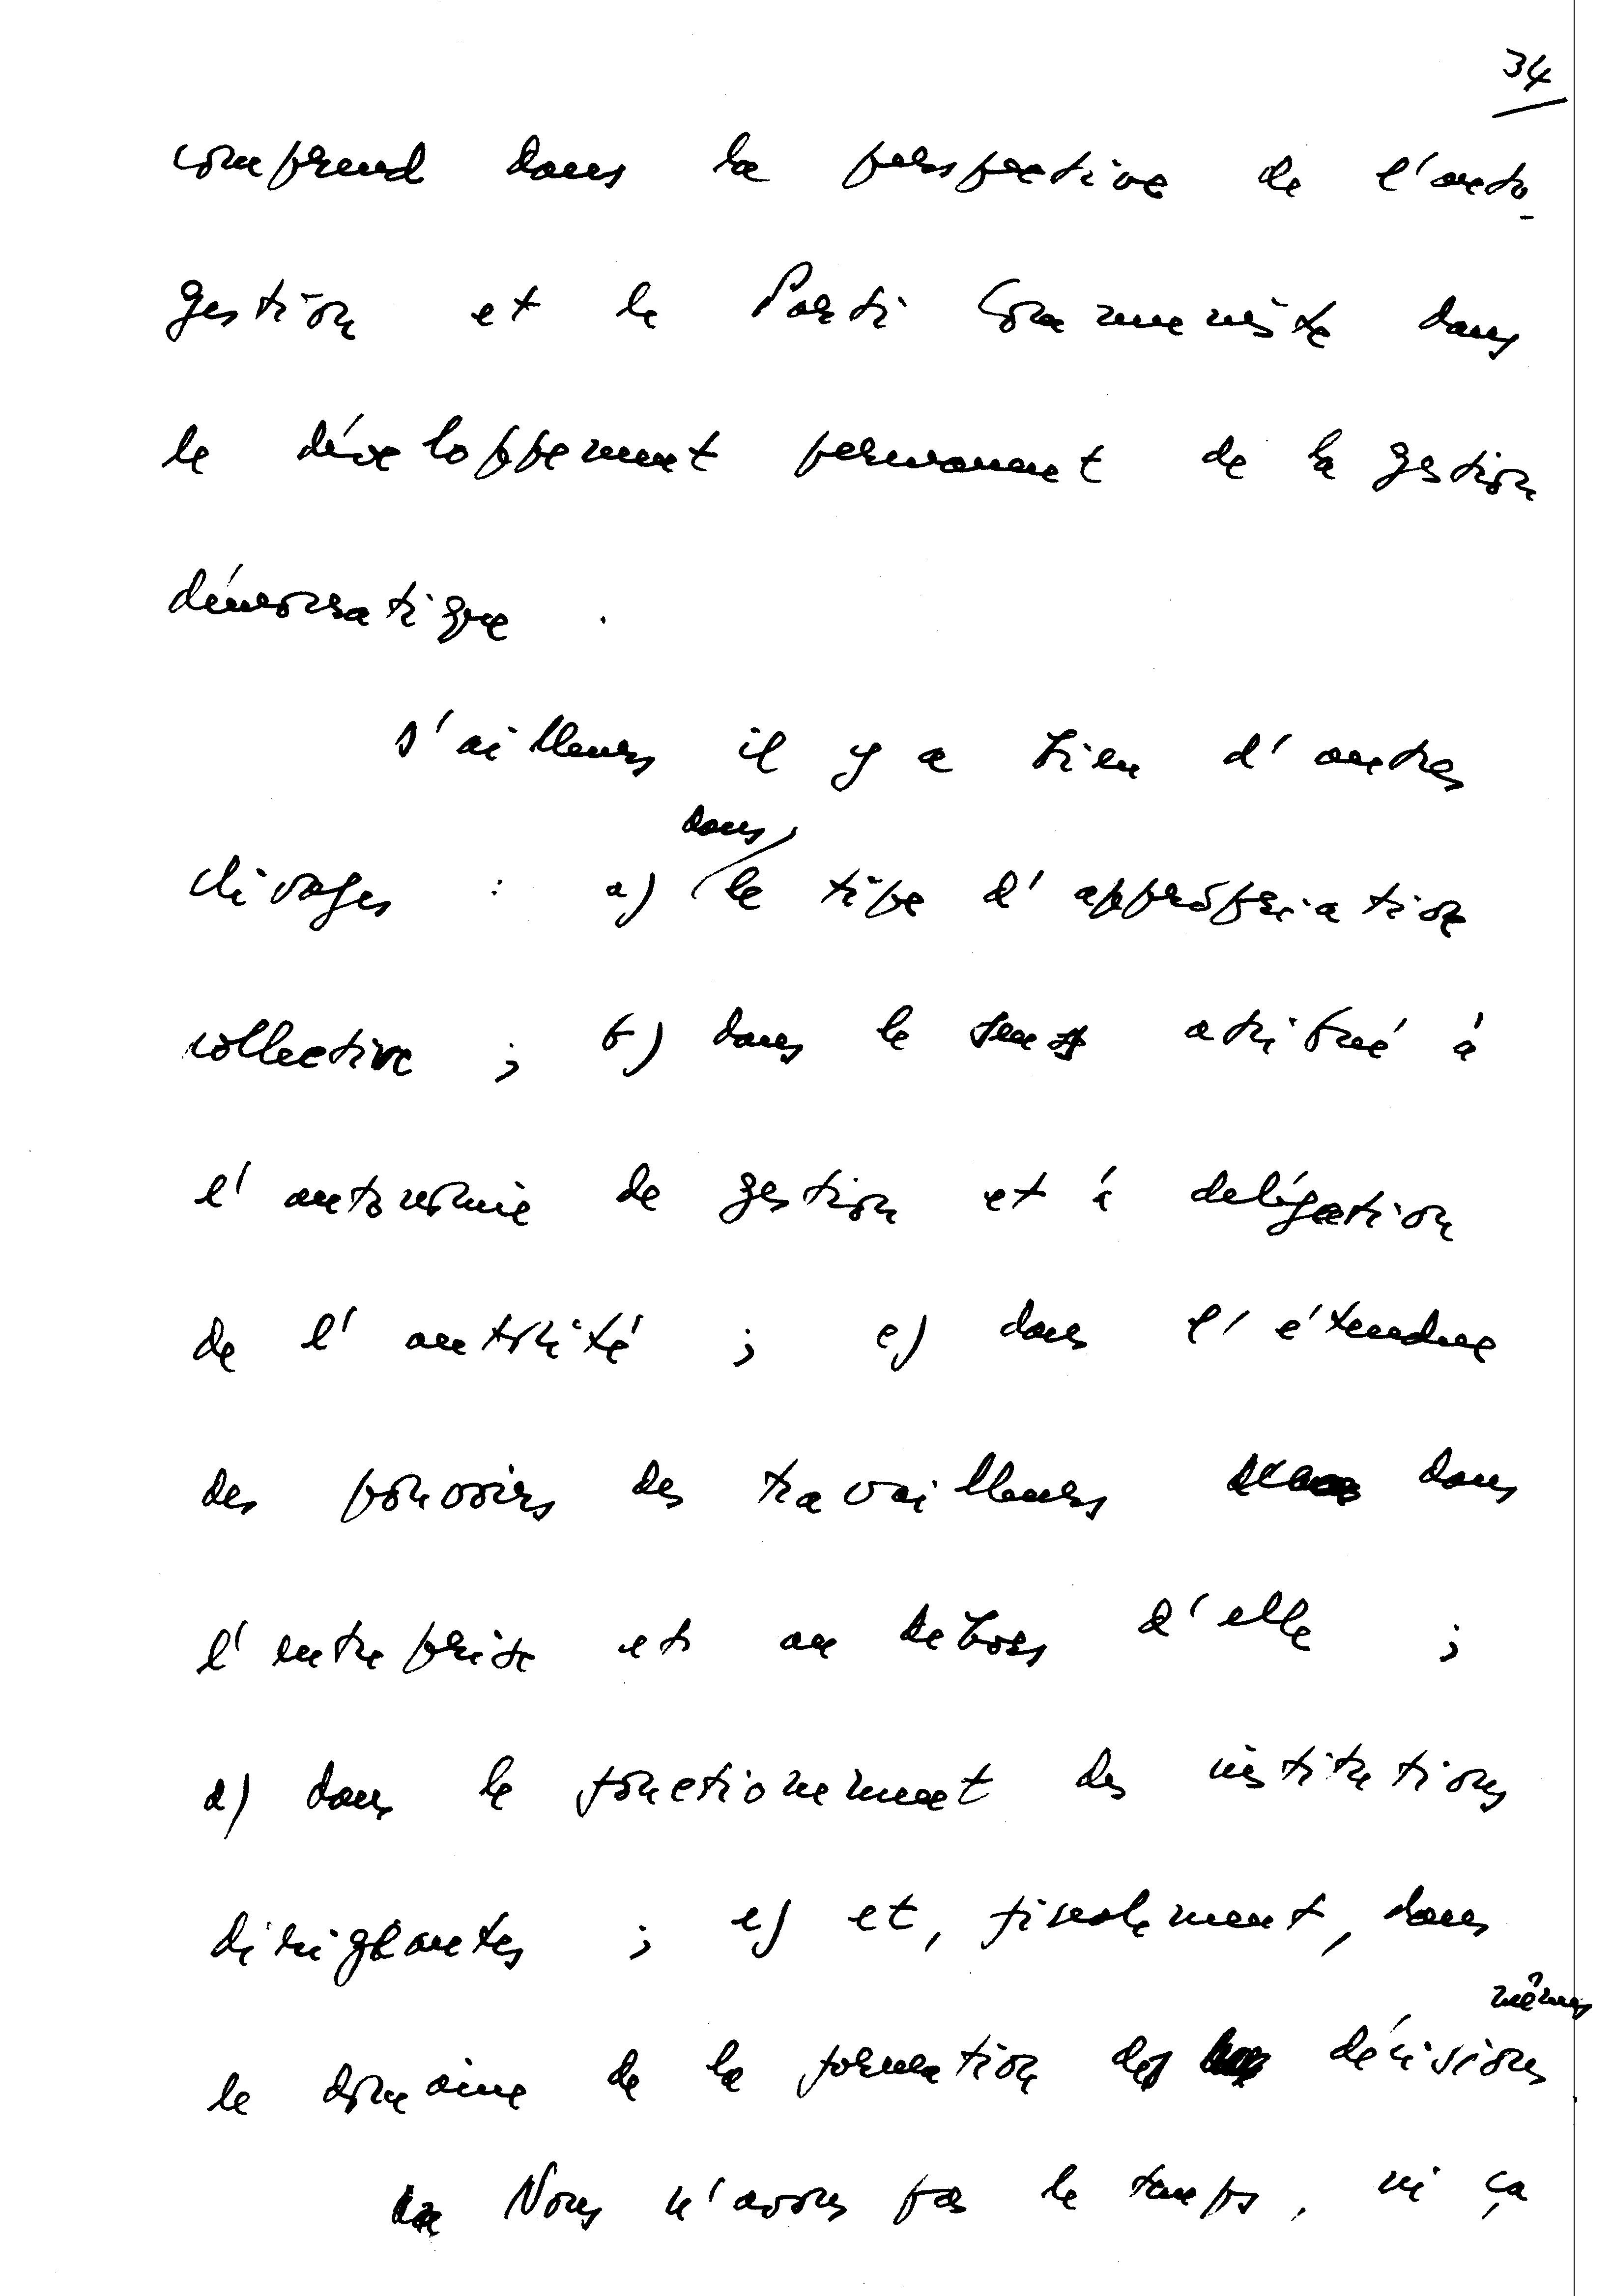 34
comprend dans la perspective de l'auto-
gestion et le Parti Communiste dans
le développement permanent de la gestion
démocratique .
D'ailleurs il y a bien d'autres
clivages : a) dans le tipe d'appropriation
collective ; b) dans le sens atribué à
l'autonomie de gestion et à delégation
de l'autorité ; c) dans l'étendue
des pouvoirs des travailleurs dans
l'entreprise et au dehors d'elle ;
d) dans le fonctionement des institutions
dirigeantes ; e) et, finalement, dans
le domaine de la formation des décisions mêmes.
Nous n'avons pas le temps, ni ça